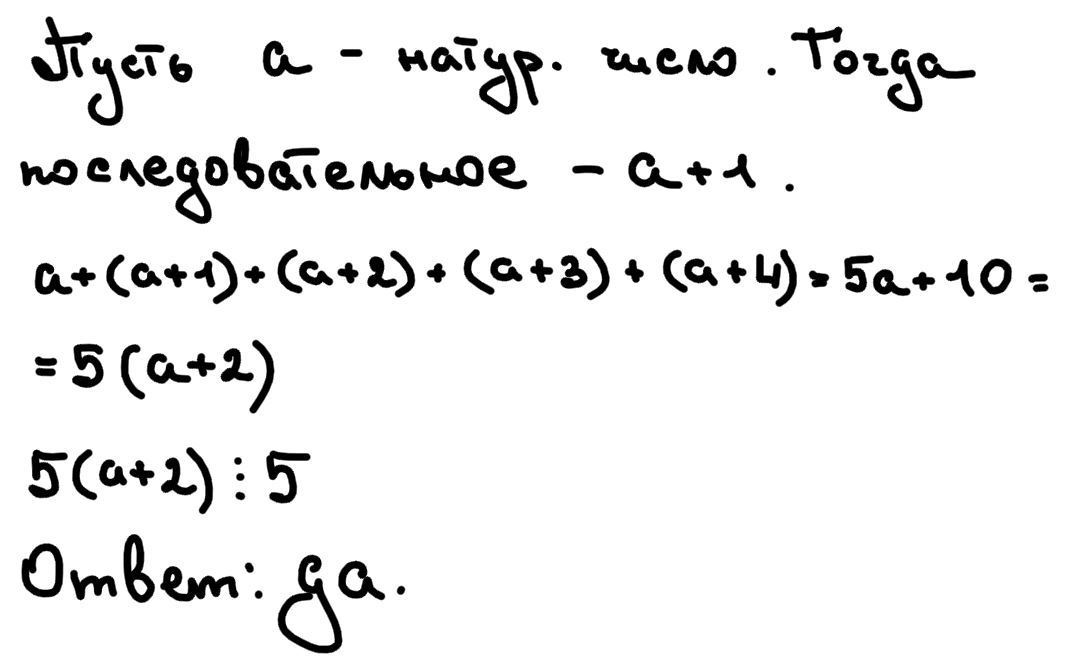 Пусть a - натур. число. Тогда
последовательное - a+1.
a+(a+1)+(a+2)+(a+3)+(a+4)=5a+10=
=5(a+2)
5(a+2)⋮5
Ответ: да.